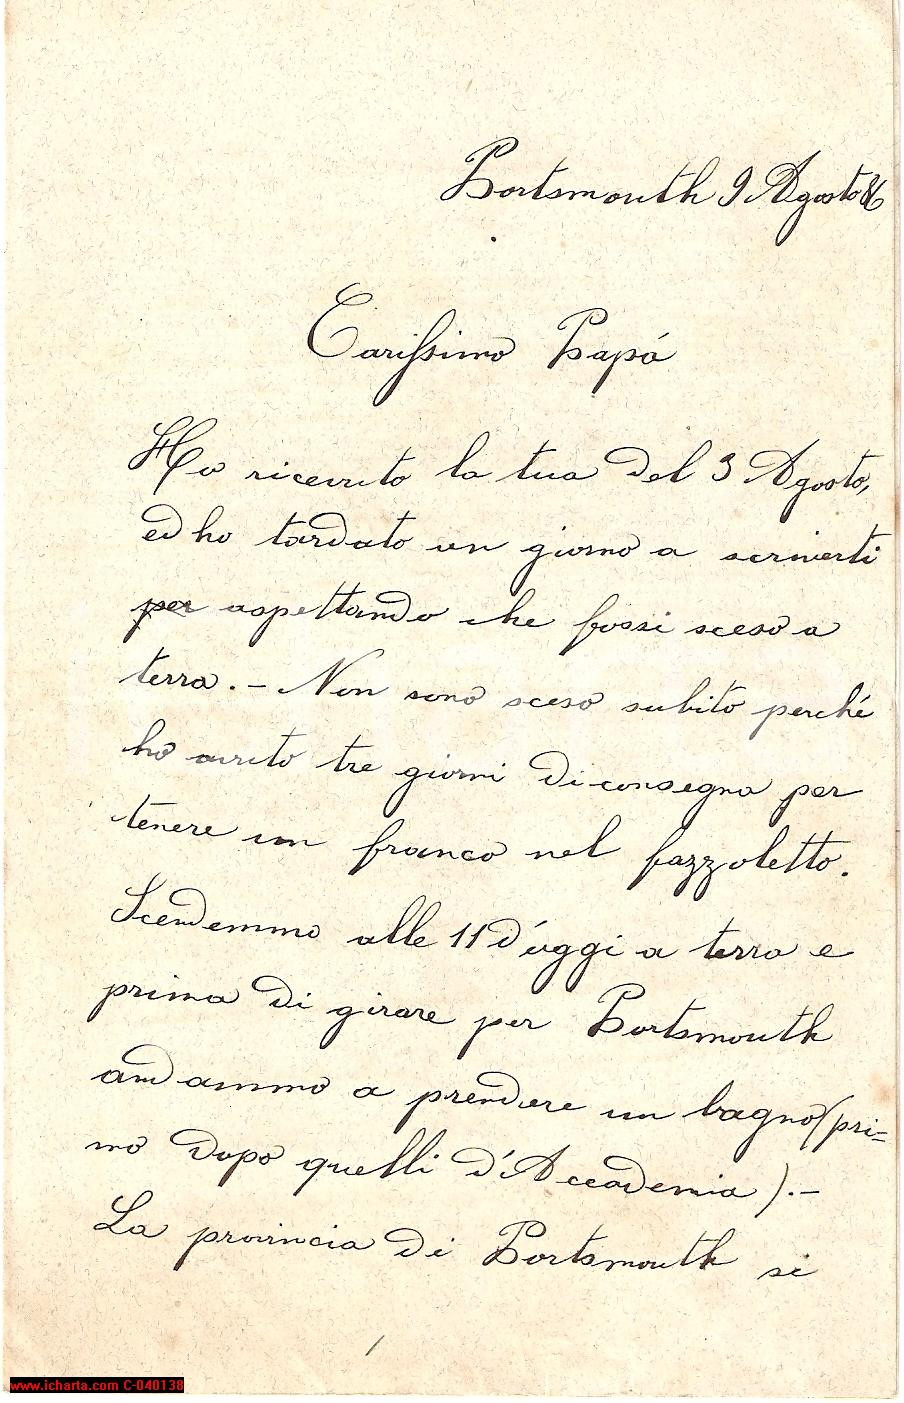 Portsmouth 9 Agosto 86
Carissimo Papá
Ho ricevuto la tua del 3 Agosto,
ed ho tardato un giorno a scriverti
per aspettando che fossi sceso a
terra. - Non sono sceso subito perché
ho avuto tre giorni di consegna per
tenere un franco nel fazzoletto.
Scendemmo alle 11 d'oggi a terra e
prima di girare per Portsmouth
andammo a prendere un bagno (pri=
mo dopo quelli d'Accademia). -
La provincia di Portsmouth si
www.icharta.com C-040138